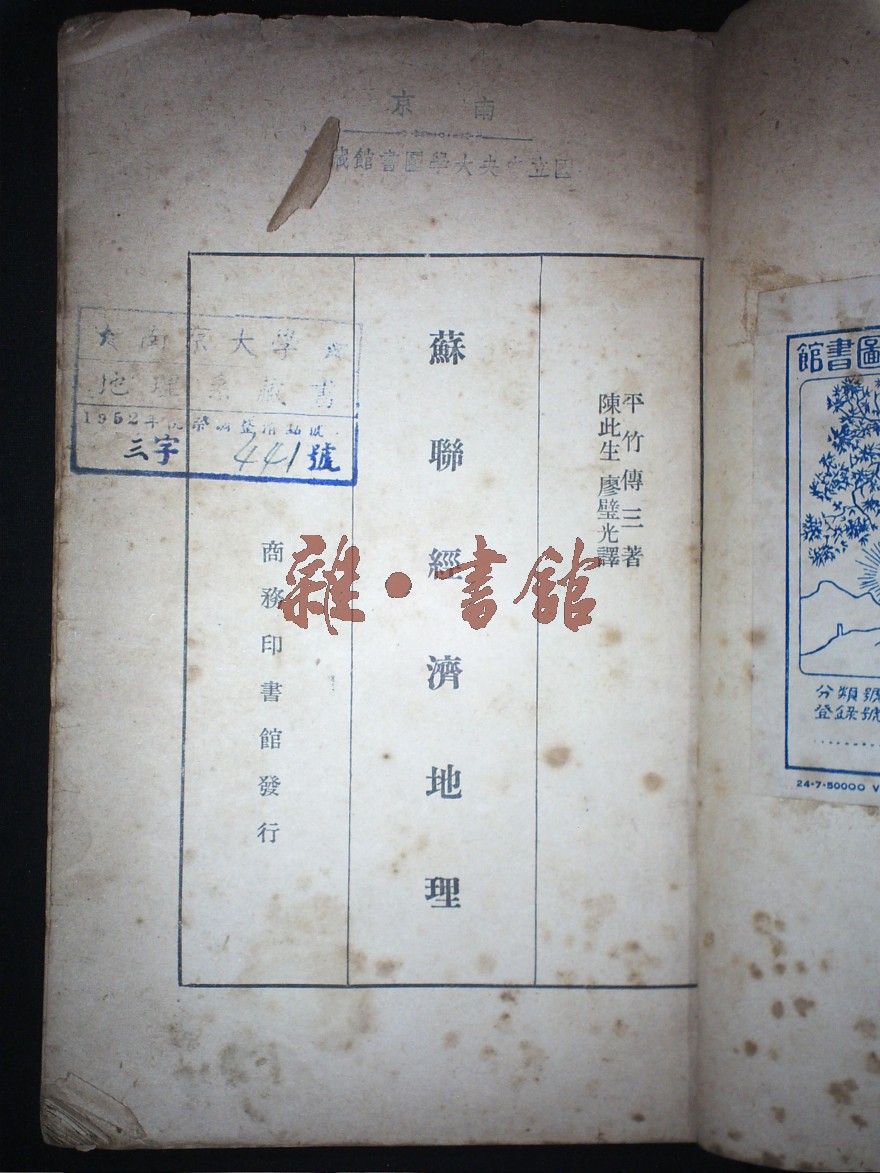 南京
國立中央大學圖書館藏
平竹傳三著
陳此生 廖璧光譯
蘇聯經濟地理
商務印書館發行
南京大學
地理系藏書
1952年院系調整清點
三字 441號
雜·書館
圖書館
分類號
登錄號
24-7-50000 V